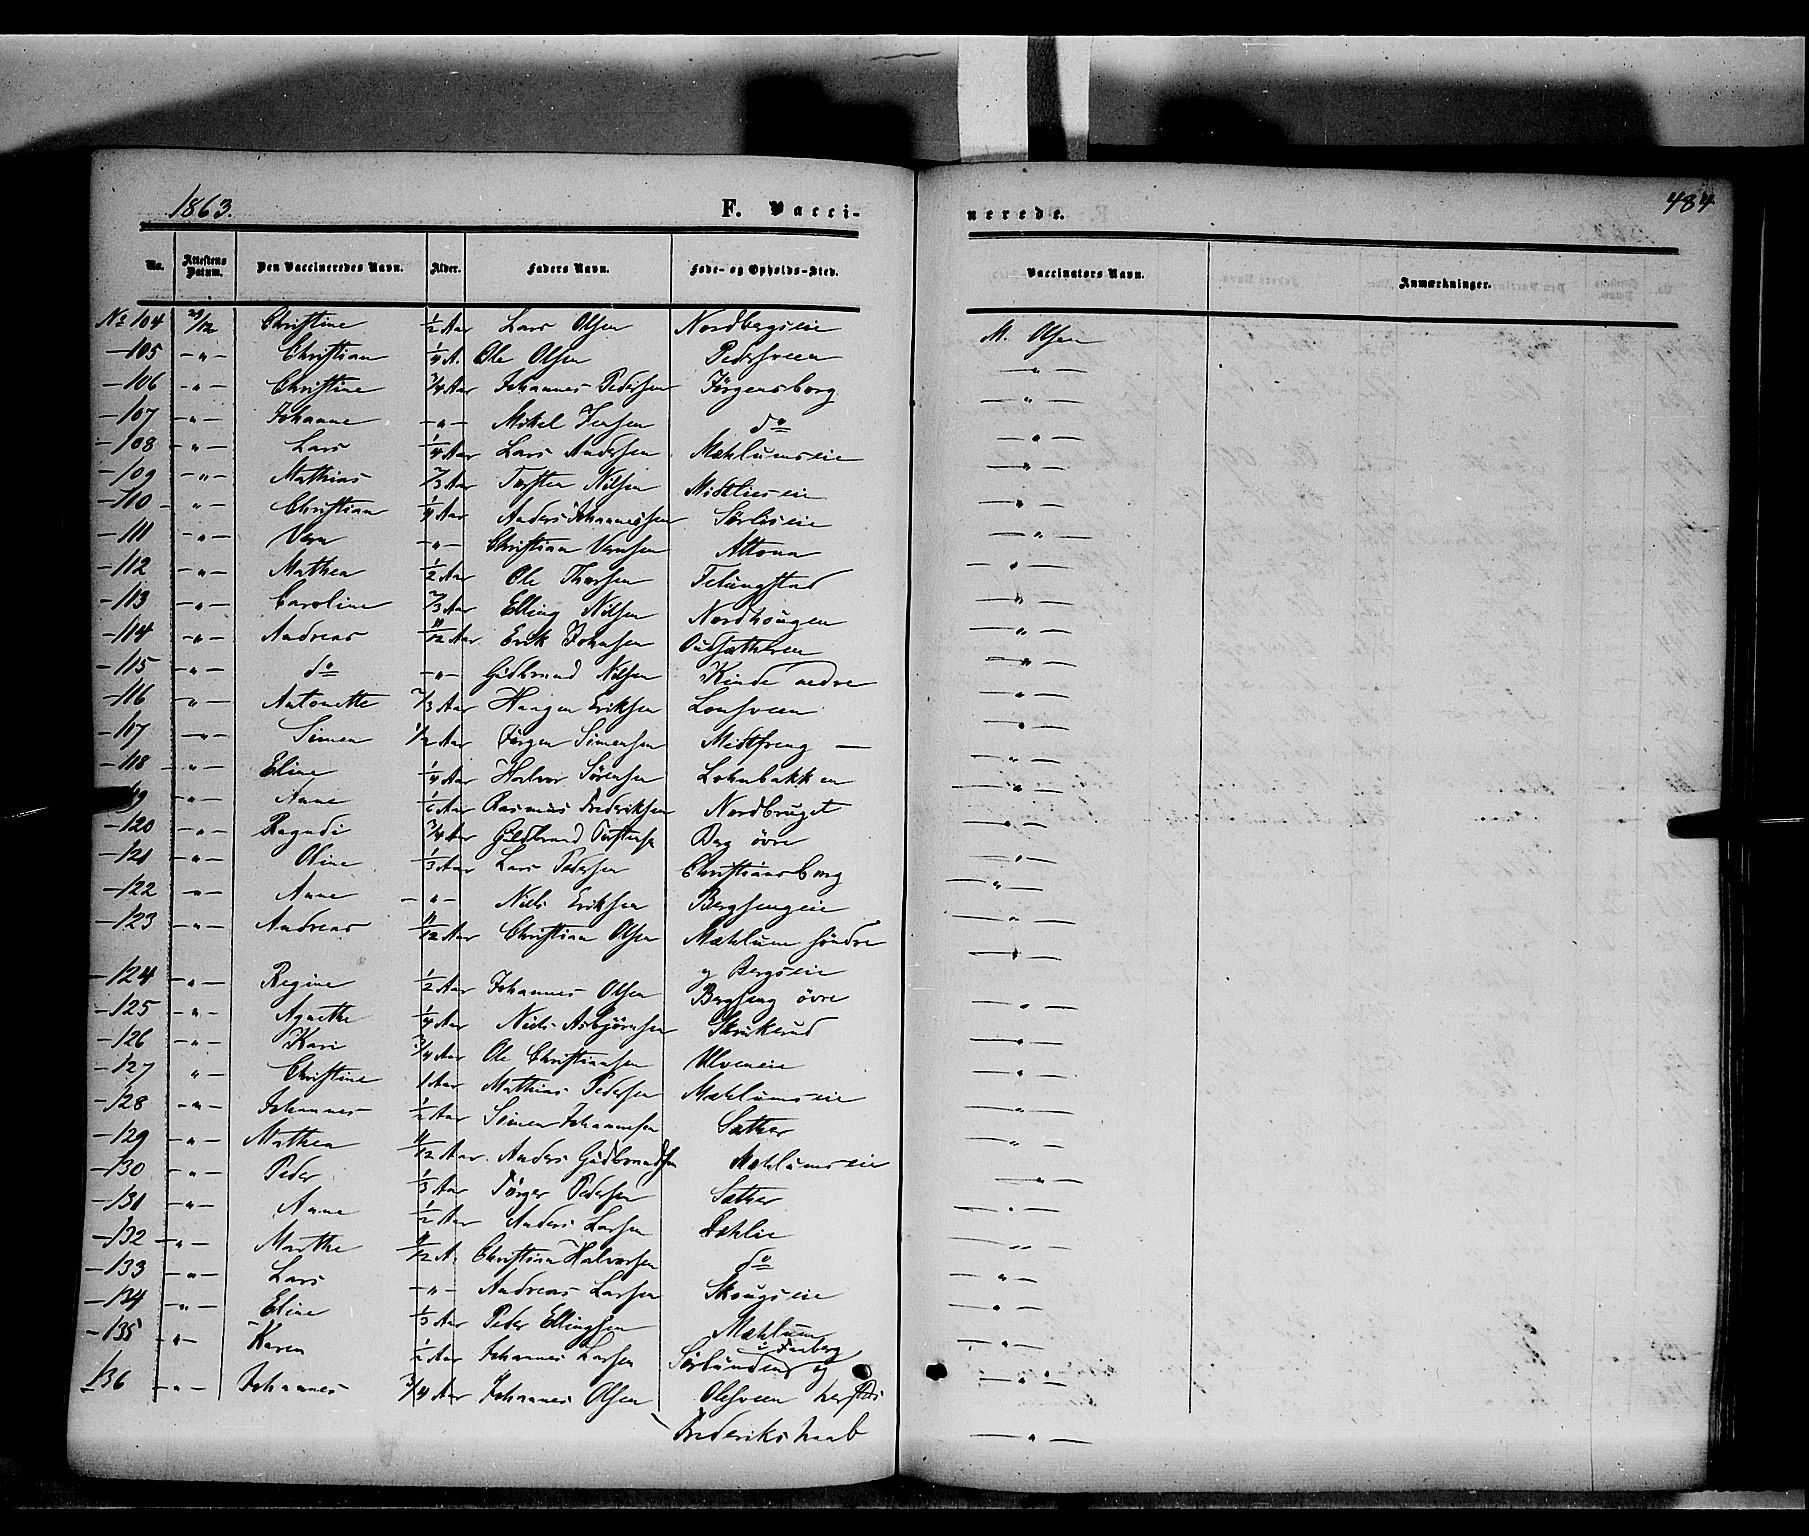 1863. F. Vacci- nerede. 484
No. Attestens Datum. Den Vaccineredes Navn. Alder. Faders Navn. Føde- og Opholds-Sted. Vaccinators Navn. Anmærkninger.
No 104 29/12 Christine 1/2 Aar Lars Olsen Nordbergseie M. Olsen
-105 -"- Christian 1/4 A. Ole Olsen Pedersveen -"-
-106 -"- Christine 3/4 Aar Johannes Pedersen Jörgensborg -"-
-107 -"- Johanne -"- Mikel Jensen do -"-
-108 -"- Lars 1/4 Aar Lars Andersen Mæhlumseie -"-
-109 -"- Mathias 2/3 Aar Torsten Nilsen Mistlieseie -"-
-110 -"- Christian 1/4 Aar Anders Johannessen Sörlieseie -"-
-111 -"- Vern -"- Christian Vernsen Altona -"-
-112 -"- Mathea 1/2 Aar Ole Thorsen -"-
-113 -"- Caroline 2/3 Aar Elling Nilsen Nordhougen -"-
-114 -"- Andreas 11/12 Aar Erik Johnsen -"-
-115 -"- do -"- Gudbrand Nilsen Kinde nedre -"-
-116 -"- Antonette 2/3 Aar Haagen Eriksen -"-
-117 -"- Simen 1/2 Aar Jörgen Simensen -"-
-118 -"- Eline 1/4 Aar Halvor Sörensen Lohnbakken -"-
-119 -"- Anne 1/6 Aar Rasmus Frederiksen Nordbruget -"-
-120 -"- Ragndi 3/4 Aar Gudbrand Torstens. Berg övre -"-
-121 -"- Oline 1/3 Aar Lars Pedersen Christiansborg -"-
-122 -"- Anne -"- Niels Eriksen Bergsengeie -"-
-123 -"- Andreas 11/12 Aar Christian Olsen Mæhlum söndre -"-
og Bergseie
-124 -"- Regine 1/2 Aar Johannes Olsen Bergseng övre -"-
-125 -"- Agnethe 1/4 Aar Niels Asbjörnsen Skrukerud -"-
-126 -"- Kari 3/4 Aar Ole Christiansen Ulveneie -"-
-127 -"- Christine 1 Aar Mathias Pedersen Mæhlumseie -"-
-128 -"- Johannes 1/2 Aar Simen Johannesen Sæther -"-
-129 -"- Mathea 11/12 Aar Anders Gudbrandsen Mæhlumseie -"-
-130 -"- Peder 1/3 Aar Törger Pedersen Sæther -"-
-131 -"- Anne 1/2 Aar Anders Larsen Dæhlie -"-
-132 -"- Marthe 11/12 A. Christian Halvorsen do -"-
-133 -"- Lars -"- Andreas Larsen Skougseie -"-
-134 -"- Eline 1/3 Aar Peder Ellingsen Mæhlum -"-
i Faaberg
-135 -"- Karen 1/2 Aar Johannes Larsen Sörlunden og -"-
-136 -"- Johannes 3/4 Aar Johannes Olsen Olesveen
Frederikshaab -"-